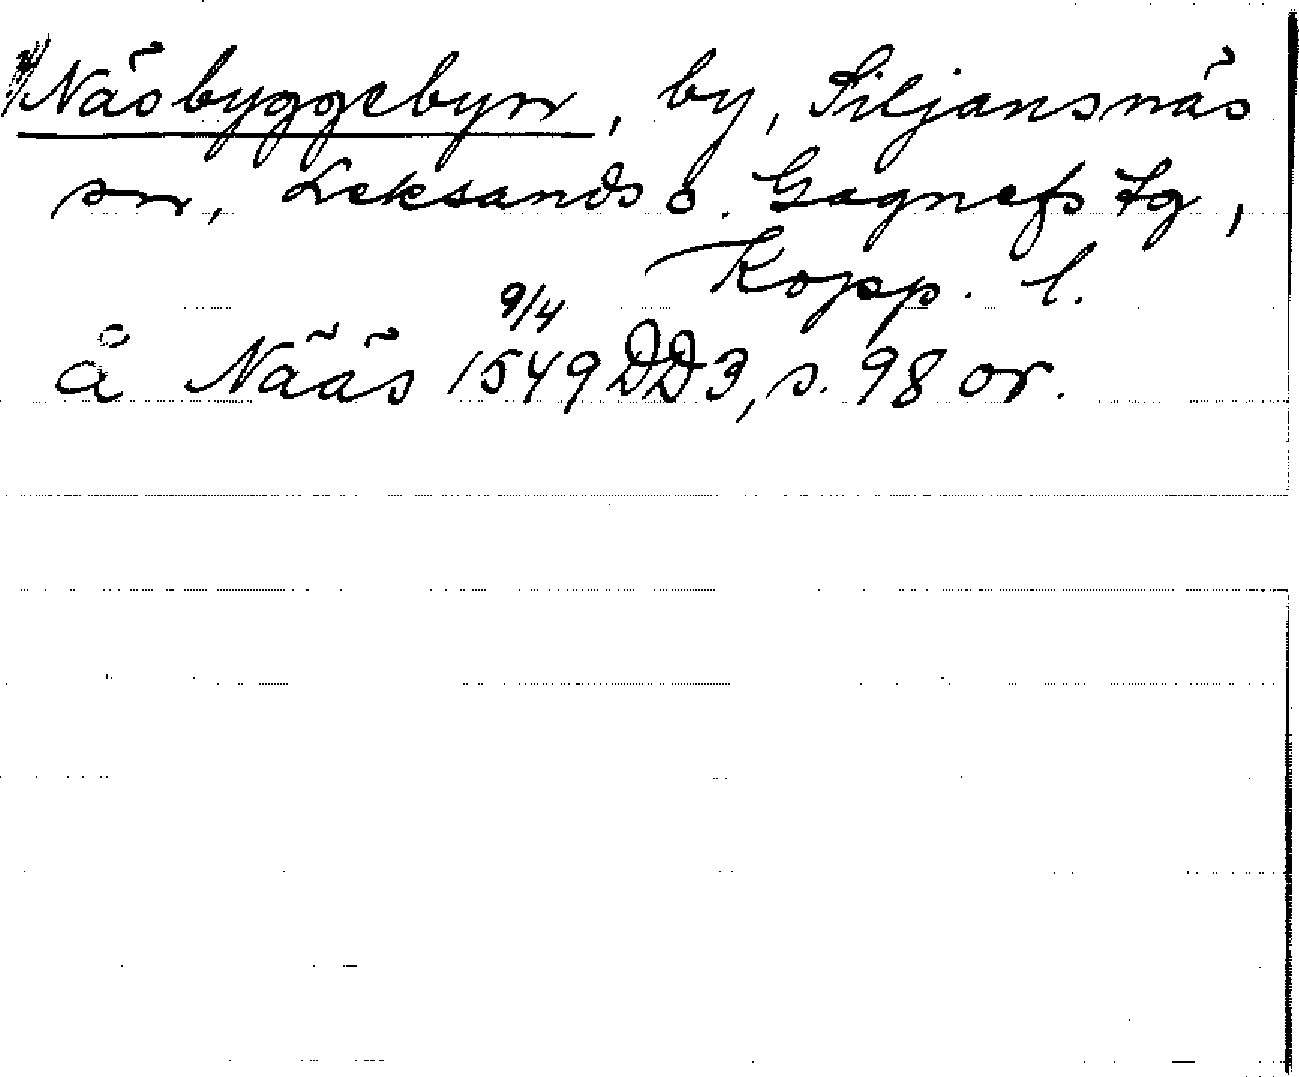 Näsbyggebyn, by, Siljansnäs
sn, Leksands o. Gagnefs tg,
Kopp. l.
å Nääs 9/4 1549 DD3, s. 98 or.